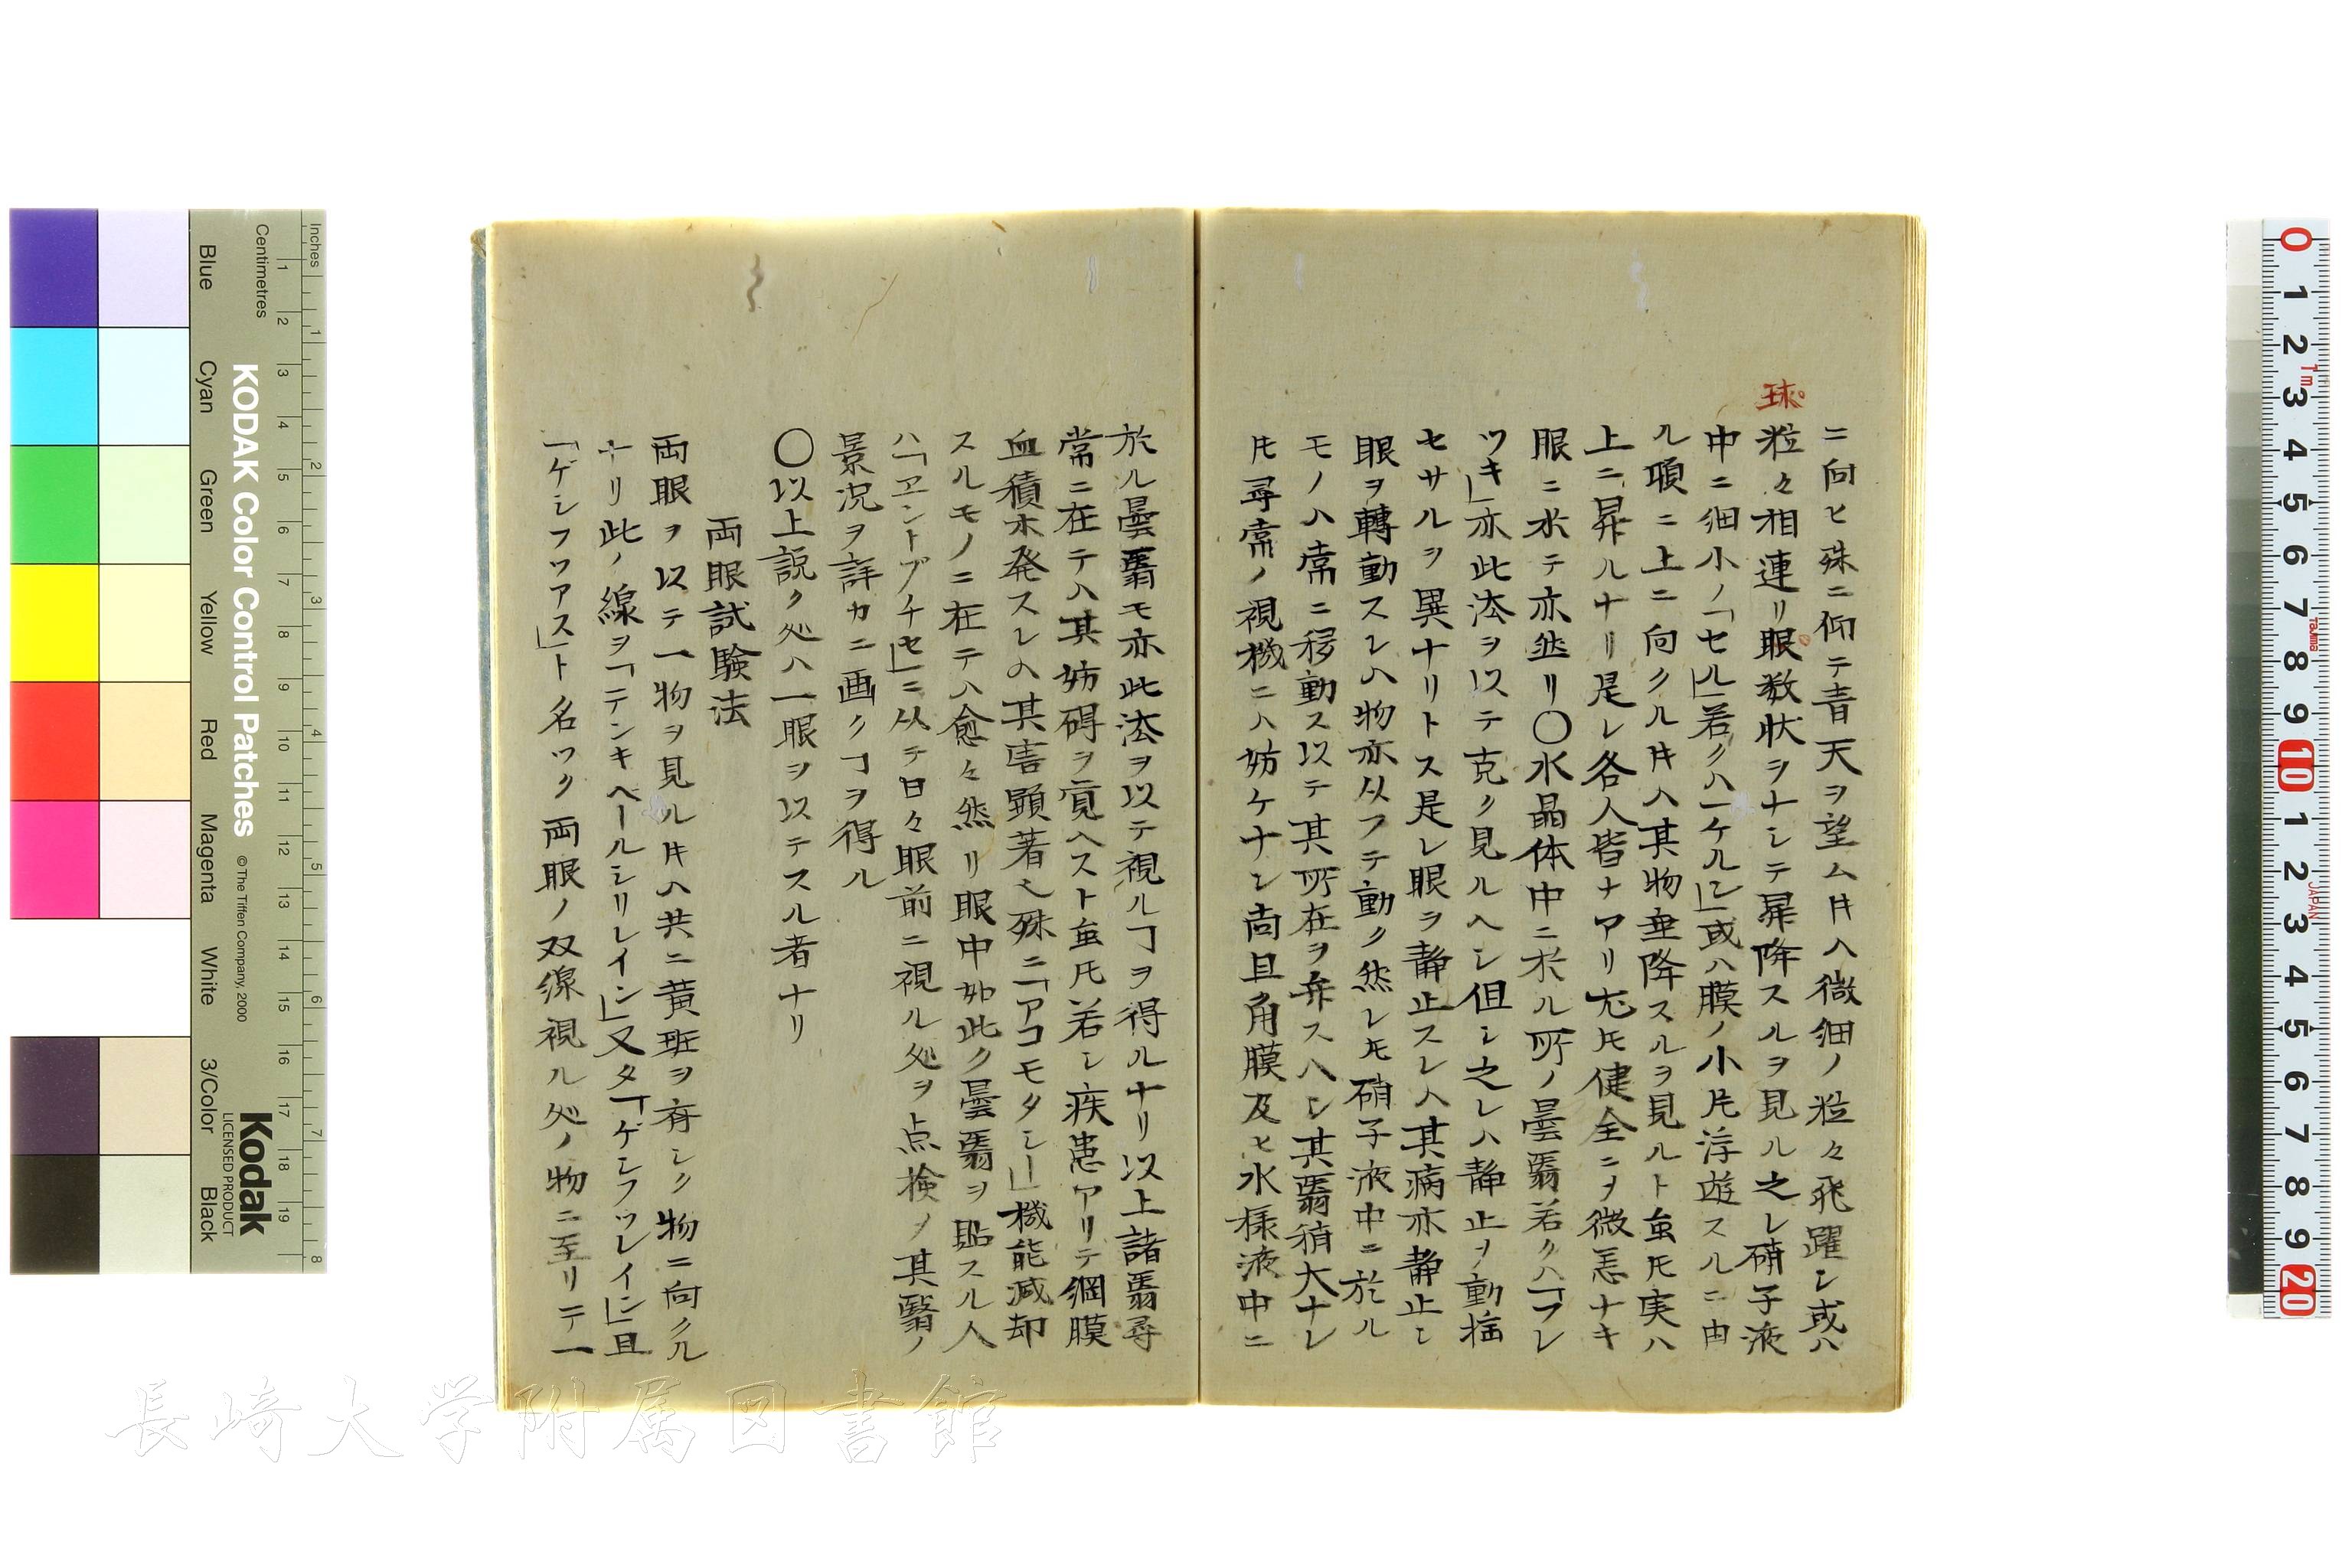 球
ニ向ヒ殊ニ仰テ青天ヲ望ムㇳキハ微細ノ粒々飛躍シ或ハ
粒々相連リ眼数状ヲナシテ昇降スルヲ見ル之レ硝子液
中ニ細小ノ「セル」若クハ「ケルン」或ハ膜ノ小片浮遊スルニ由
ル頭ニ上ニ向クル𪜈ハ其物垂降スルヲ見ルト虽𪜈実ハ
上ニ昇ルナリ是レ各人皆ナアリ尤𪜈健全ニヲ微恙ナキ
眼ニ於テ亦然リ〇水晶体中ニ於ル所ノ曇翳若クハ「フレ
ツキ」亦此法ヲ以テ克ク見ルヘシ但シ之レハ静止ヲ動揺
セサルヲ異ナリトス是レ眼ヲ静止スレハ其病亦静止シ
眼ヲ轉動スレハ物亦从フテ動ク然レ𪜈硝子液中ニ於ル
モノハ常ニ移動ス以テ其所在ヲ弁スヘシ其翳稍大ナレ
𪜈尋常ノ視機ニハ妨ケナシ尚且角膜及ヒ水様液中ニ
於ル曇翳モ亦此法ヲ以テ視ルヿヲ得ルナリ以上諸翳尋
常ニ在テハ其妨碍ヲ覚ヘスト虽𪜈若シ疾患アリテ網膜
血積ホ発スレハ其害顕著也殊ニ「アコモタシー」機能減却
スルモノニ在テハ愈々然リ眼中如此ク曇翳ヲ貼スル人
ハ「ヱントプチセ」ニ从テ日々眼前ニ視ル処ヲ点検ノ其翳ノ
景況ヲ詳カニ画クヿヲ得ル
〇以上説ク処ハ一眼ヲ以テスル者ナリ
両眼試験法
両眼ヲ以テ一物ヲ見ルㇳキハ共ニ黄斑ヲ有シク物ニ向クル
ナリ此ノ線ヲ「テンキベールシリレイン」又タ「ゲシフツレイン」且
「ゲシフツアス」ト名ツク両眼ノ双線視ル処ノ物ニ至リテ一
Inches
Centimetres
KODAK Color Control Patches
© The Tiffen Company, 2000
Kodak
LICENSED PRODUCT
Blue
Cyan
Green
Yellow
Red
Magenta
White
3/Color
Black
長崎大学附属図書館